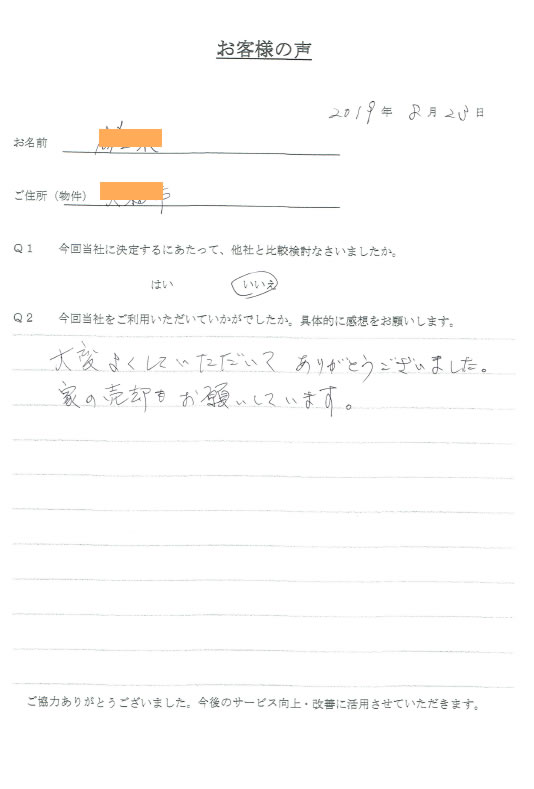 お客様の声
2019年 8月23日
お名前
ご住所（物件）
Q1 今回当社に決定するにあたって、他社と比較検討なさいましたか。
はい いいえ
Q2 今回当社をご利用いただいていかがでしたか。具体的に感想をお願いします。
大変よくしていただいて ありがとうございました。
家の売却もお願いしています。
ご協力ありがとうございました。今後のサービス向上・改善に活用させていただきます。